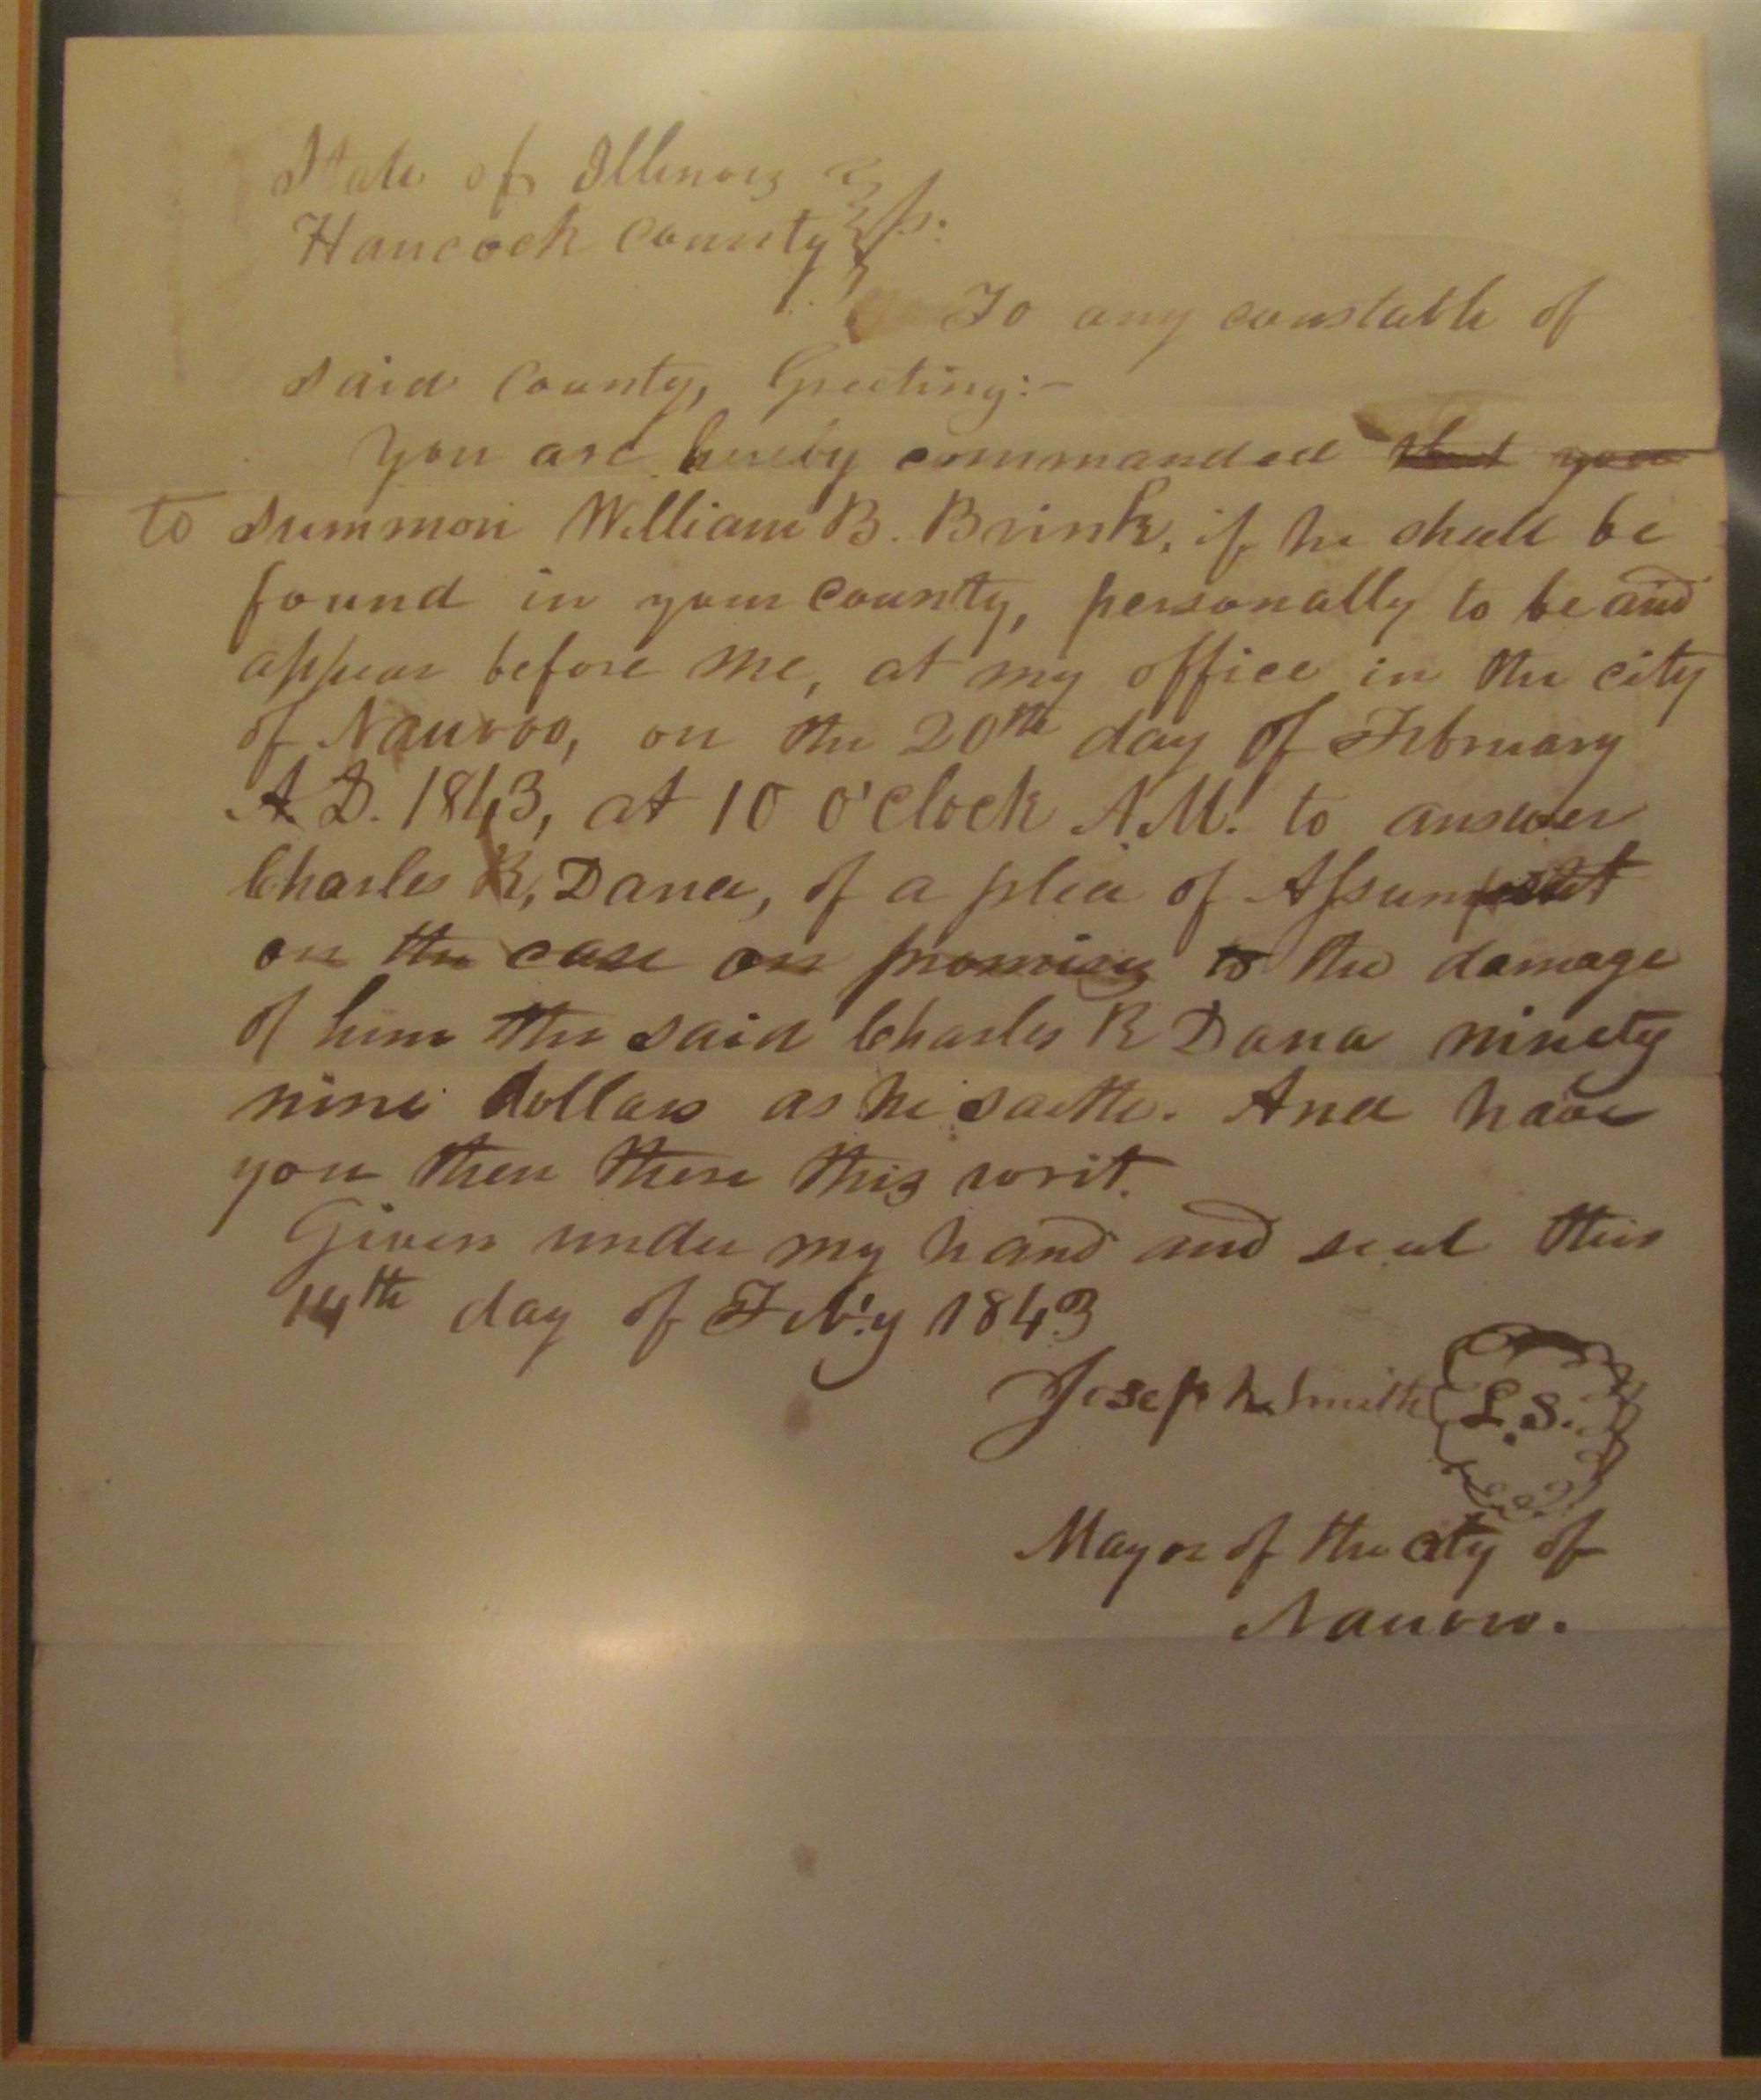 State of Illinois } ss.
Hancock County }
To any constable of
said County, Greeting:-
You are hereby commanded that you
to summon William B. Brink, if he shall be
found in your County, personally to be and
appear before me, at my office in the city
of Nauvoo, on the 20th day of February
A.D. 1843, at 10 o'clock A.M. to answer
Charles R, Dana, of a plea of Assumpsit
on the case on promises to the damage
of him the said Charles R Dana ninety
nine dollars as he saith. And have
you then there this writ.
Given under my hand and seal this
14th day of Feb'y 1843
Joseph Smith L.S.
Mayor of the city of
Nauvoo.